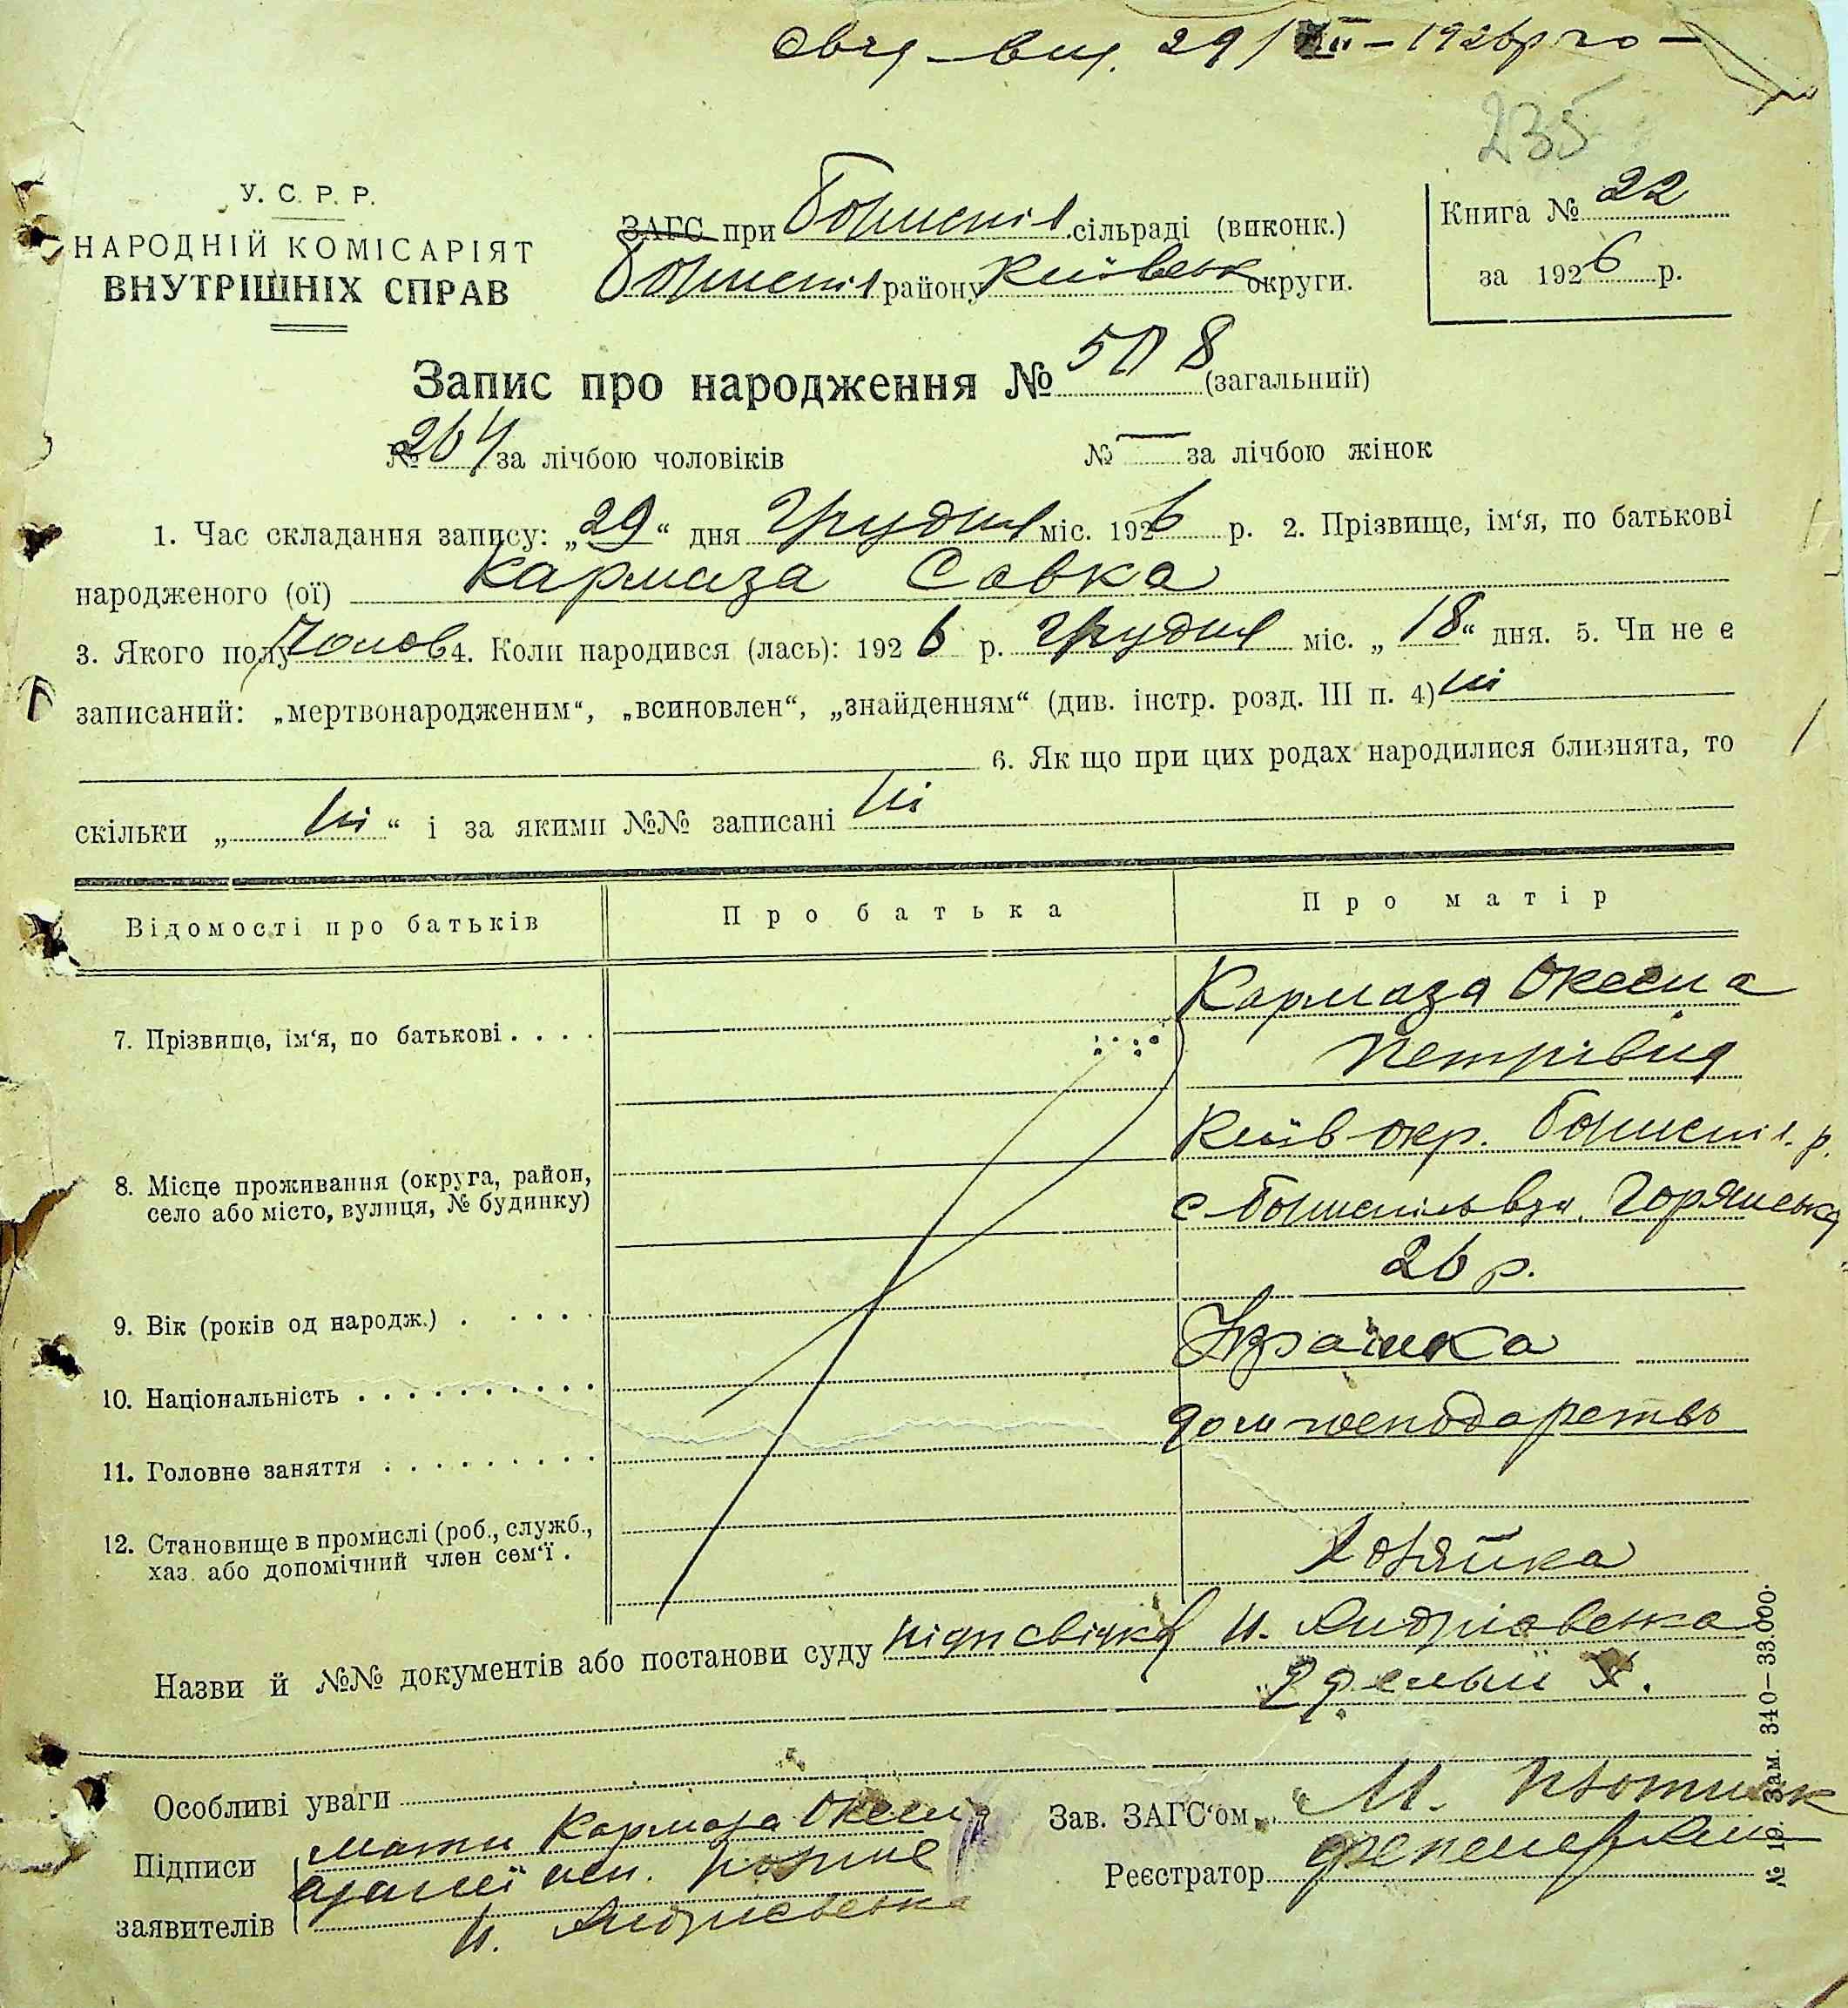 Свід. вид. 29/XII-1926 р.
235
У. С. Р. Р.
НАРОДНІЙ КОМІСАРІЯТ
ВНУТРІШНІХ СПРАВ
ЗАГС при Бориспіл. сільраді (виконк.)
Бориспіл району Київськ округи.
Книга № 22
за 1926 р.
Запис про народження № 508 (загальний)
№ 264 за лічбою чоловіків
№ — за лічбою жінок
1. Час складання запису: „29“ дня Грудня міс. 1926 р. 2. Прізвище, ім‘я, по батькові
народженого (ої) Кармаза Савка
3. Якого полу Чолов 4. Коли народився (лась): 1926 р. Грудня міс. „18“ дня. 5. Чи не є
записаний: „мертвонародженим“, „всиновлен“, „знайденням“ (див. інстр. розд. III п. 4) ні
6. Як що при цих родах народилися близнята, то
скільки „ні“ і за якими №№ записані ні
Відомості про батьків
Про батька
Про матір
7. Прізвище, ім‘я, по батькові . . . .
Кармаза Оксена
Петрівна
8. Місце проживання (округа, район,
село або місто, вулиця, № будинку)
Київ окр. Бориспіл. р.
с Бориспіль вул. Горянська
9. Вік (років од народж.) . . . . .
26 р.
10. Національність . . . . . . . . . .
Українка
11. Головне заняття . . . . . . . . .
дом господарство
12. Становище в промислі (роб., служб.,
хаз. або допомічний член сем‘ї .
Хозяйка
Назви й №№ документів або постанови суду підп свідка Н. Андрієвська
Особливі уваги
Підписи
заявителів
мати Кармаза Оксена
Н. Андрієвська
Зав. ЗАГС‘ом
Реєстратор
№ 19. Зам. 340—33.000.